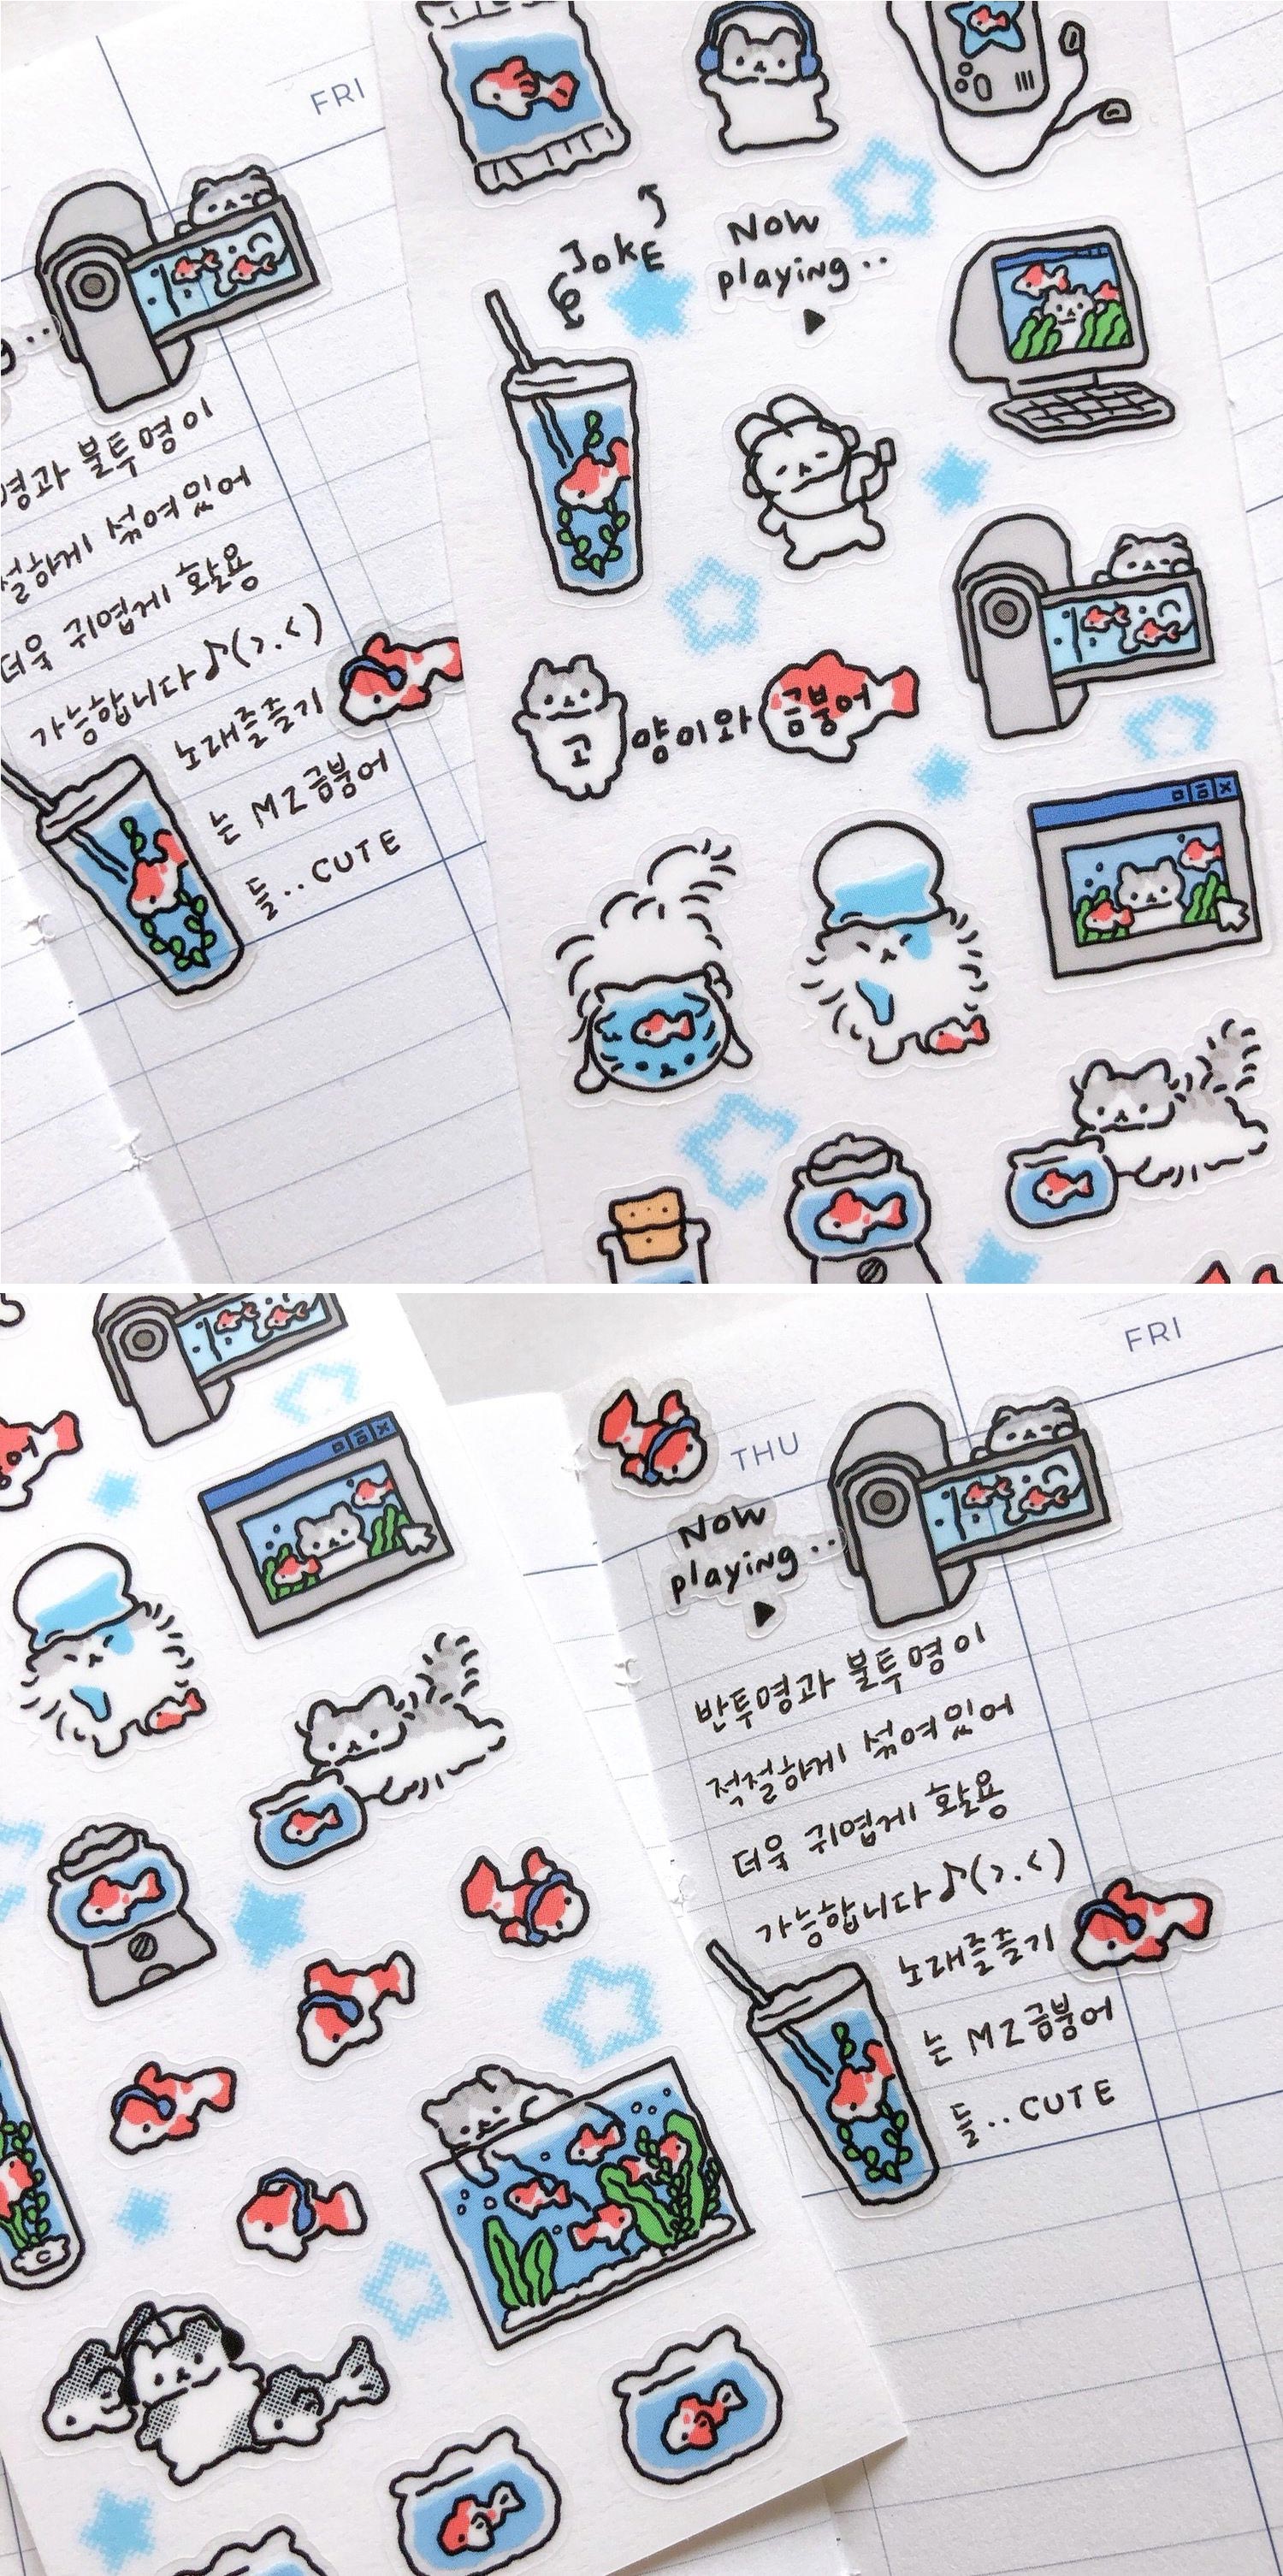 FRI
JOKE
Now
playing..
명과 불투명이
절하게 섞여있어
더욱 귀엽게 활용
가능합니다♪(>.<)
노래즐기
는 MZ금붕어
들..CUTE
고양이와 금붕어
FRI
THU
Now
playing..
반투명과 불투명이
적절하게 섞여있어
더욱 귀엽게 활용
가능합니다♪(>.<)
노래즐기
는 MZ금붕어
들..CUTE